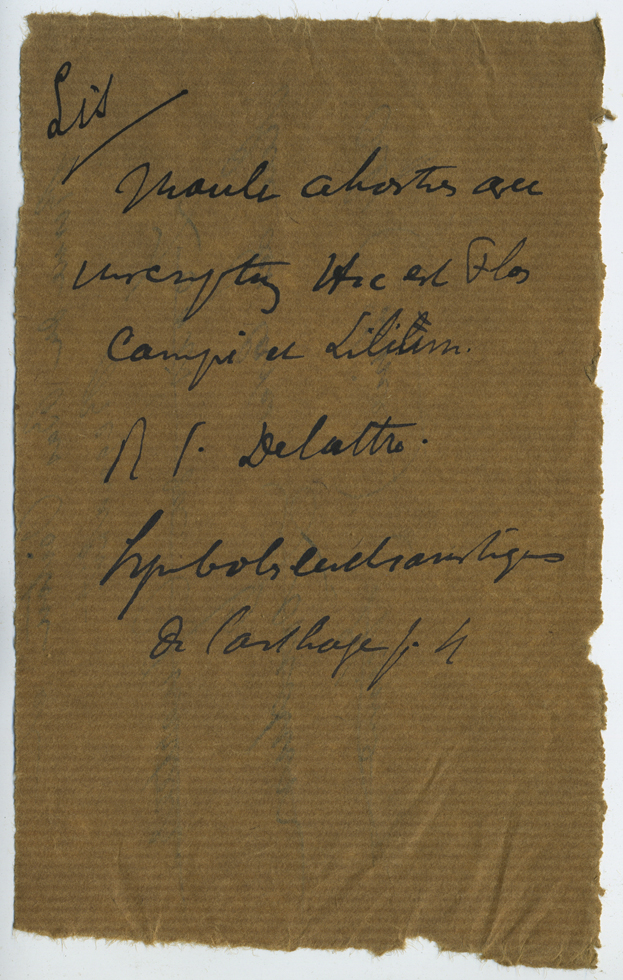 Lis
Moule à hosties avec
inscription Hic est Flos
Campi et Lilium.
R P. Delattre.
Symboles eucharistiques
de Carthage p.